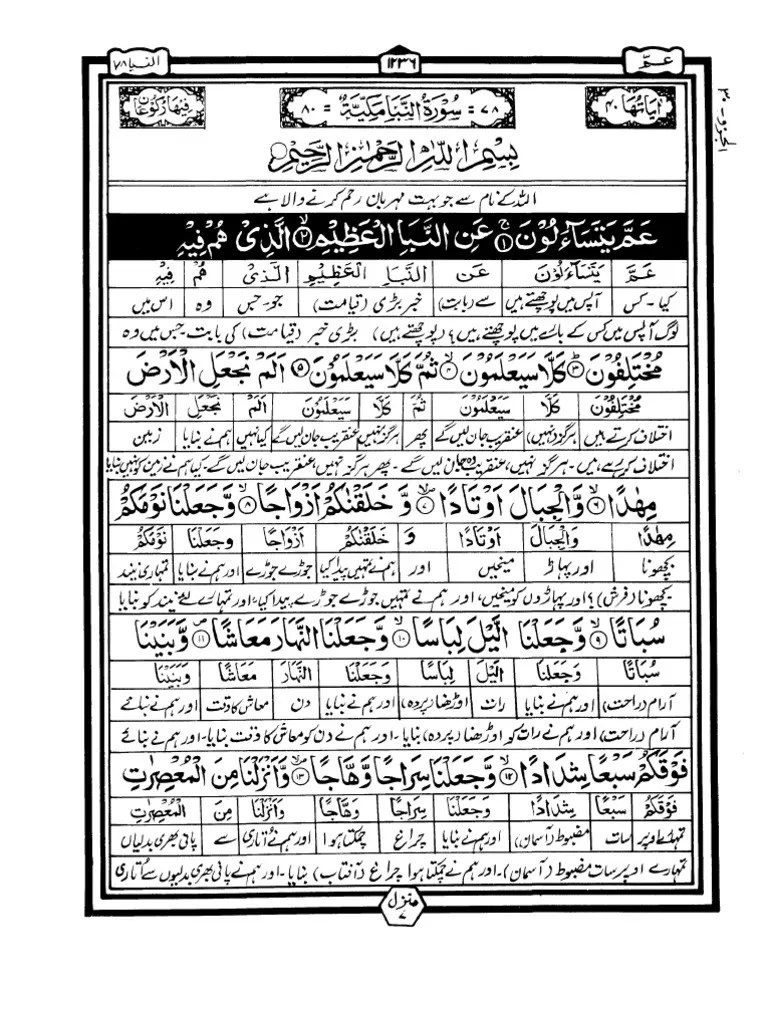 النبا ٧٨
١٢٣٦
عمّ
الجزو-٣٠
اٰيَاتُهَا ٤٠
٧٨ = سُوْرَةُ النَّبَاِ مَكِّيَّةٌ = ٨٠
فِيْهَا رُكُوْعَانِ
بِسْمِ اللّٰهِ الرَّحْمٰنِ الرَّحِيْمِ
اللہ کے نام سے جو بہت مہربان رحم کرنے والا ہے
عَمَّ يَتَسَآءَلُوْنَ ۝١ عَنِ النَّبَاِ الْعَظِيْمِ ۝٢ الَّذِىْ هُمْ فِيْهِ
عَمَّ يَتَسَآءَلُوْنَ عَنِ النَّبَاِ الْعَظِيْمِ الَّذِىْ هُمْ فِيْهِ
کیا - کس آپس میں پوچھتے ہیں سے (بابت) خبر بڑی (قیامت) جو - جس وہ اس میں
لوگ آپس میں کس کے بارے میں پوچھتے ہیں؟ (پوچھتے ہیں) بڑی خبر (قیامت) کی بابت جس میں وہ
مُخْتَلِفُوْنَ ۝٣ كَلَّا سَيَعْلَمُوْنَ ۝٤ ثُمَّ كَلَّا سَيَعْلَمُوْنَ ۝٥ اَلَمْ نَجْعَلِ الْاَرْضَ
مُخْتَلِفُوْنَ كَلَّا سَيَعْلَمُوْنَ ثُمَّ كَلَّا سَيَعْلَمُوْنَ اَلَمْ نَجْعَلِ الْاَرْضَ
اختلاف کرتے ہیں ہرگز (نہیں) عنقریب جان لیں گے پھر ہرگز نہیں عنقریب جان لیں گے کیا نہیں ہم نے بنایا زمین
اختلاف کر رہے ہیں۔ ہرگز نہیں، عنقریب وہ جان لیں گے۔ پھر ہرگز نہیں، عنقریب جان لیں گے۔ کیا ہم نے زمین کو نہیں بنایا
مِهٰدًا ۝٦ وَّالْجِبَالَ اَوْتَادًا ۝٧ وَّ خَلَقْنٰكُمْ اَزْوَاجًا ۝٨ وَّجَعَلْنَا نَوْمَكُمْ
مِهٰدًا وَّالْجِبَالَ اَوْتَادًا وَّ خَلَقْنٰكُمْ اَزْوَاجًا وَّجَعَلْنَا نَوْمَكُمْ
بچھونا اور پہاڑ میخیں اور ہم نے تمہیں پیدا کیا جوڑے جوڑے اور ہم نے بنایا تمہاری نیند
بچھونا (فرش)؟ اور پہاڑوں کو میخیں، اور ہم نے تمہیں جوڑے جوڑے پیدا کیا، اور تمہارے لیے نیند کو بنایا
سُبَاتًا ۝٩ وَّجَعَلْنَا الَّيْلَ لِبَاسًا ۝١٠ وَّجَعَلْنَا النَّهَارَ مَعَاشًا ۝١١ وَّبَنَيْنَا
سُبَاتًا وَّجَعَلْنَا الَّيْلَ لِبَاسًا وَّجَعَلْنَا النَّهَارَ مَعَاشًا وَّبَنَيْنَا
آرام (راحت) اور ہم نے بنایا رات اوڑھنا (پردہ) اور ہم نے بنایا دن معاش کا وقت اور ہم نے بنائے
آرام (راحت) اور ہم نے رات کو اوڑھنا (پردہ) بنایا۔ اور ہم نے دن کو معاش کا وقت بنایا۔ اور ہم نے بنائے
فَوْقَكُمْ سَبْعًا شِدَادًا ۝١٢ وَّجَعَلْنَا سِرَاجًا وَّهَّاجًا ۝١٣ وَّاَنْزَلْنَا مِنَ الْمُعْصِرٰتِ
فَوْقَكُمْ سَبْعًا شِدَادًا وَّجَعَلْنَا سِرَاجًا وَّهَّاجًا وَّاَنْزَلْنَا مِنَ الْمُعْصِرٰتِ
تمہارے اوپر سات مضبوط (آسمان) اور ہم نے بنایا چراغ چمکتا ہوا اور ہم نے اُتاری سے پانی بھری بدلیاں
تمہارے اوپر سات مضبوط (آسمان)۔ اور ہم نے چمکتا ہوا چراغ (آفتاب) بنایا۔ اور ہم نے پانی بھری بدلیوں سے اُتاری
منزل ٧